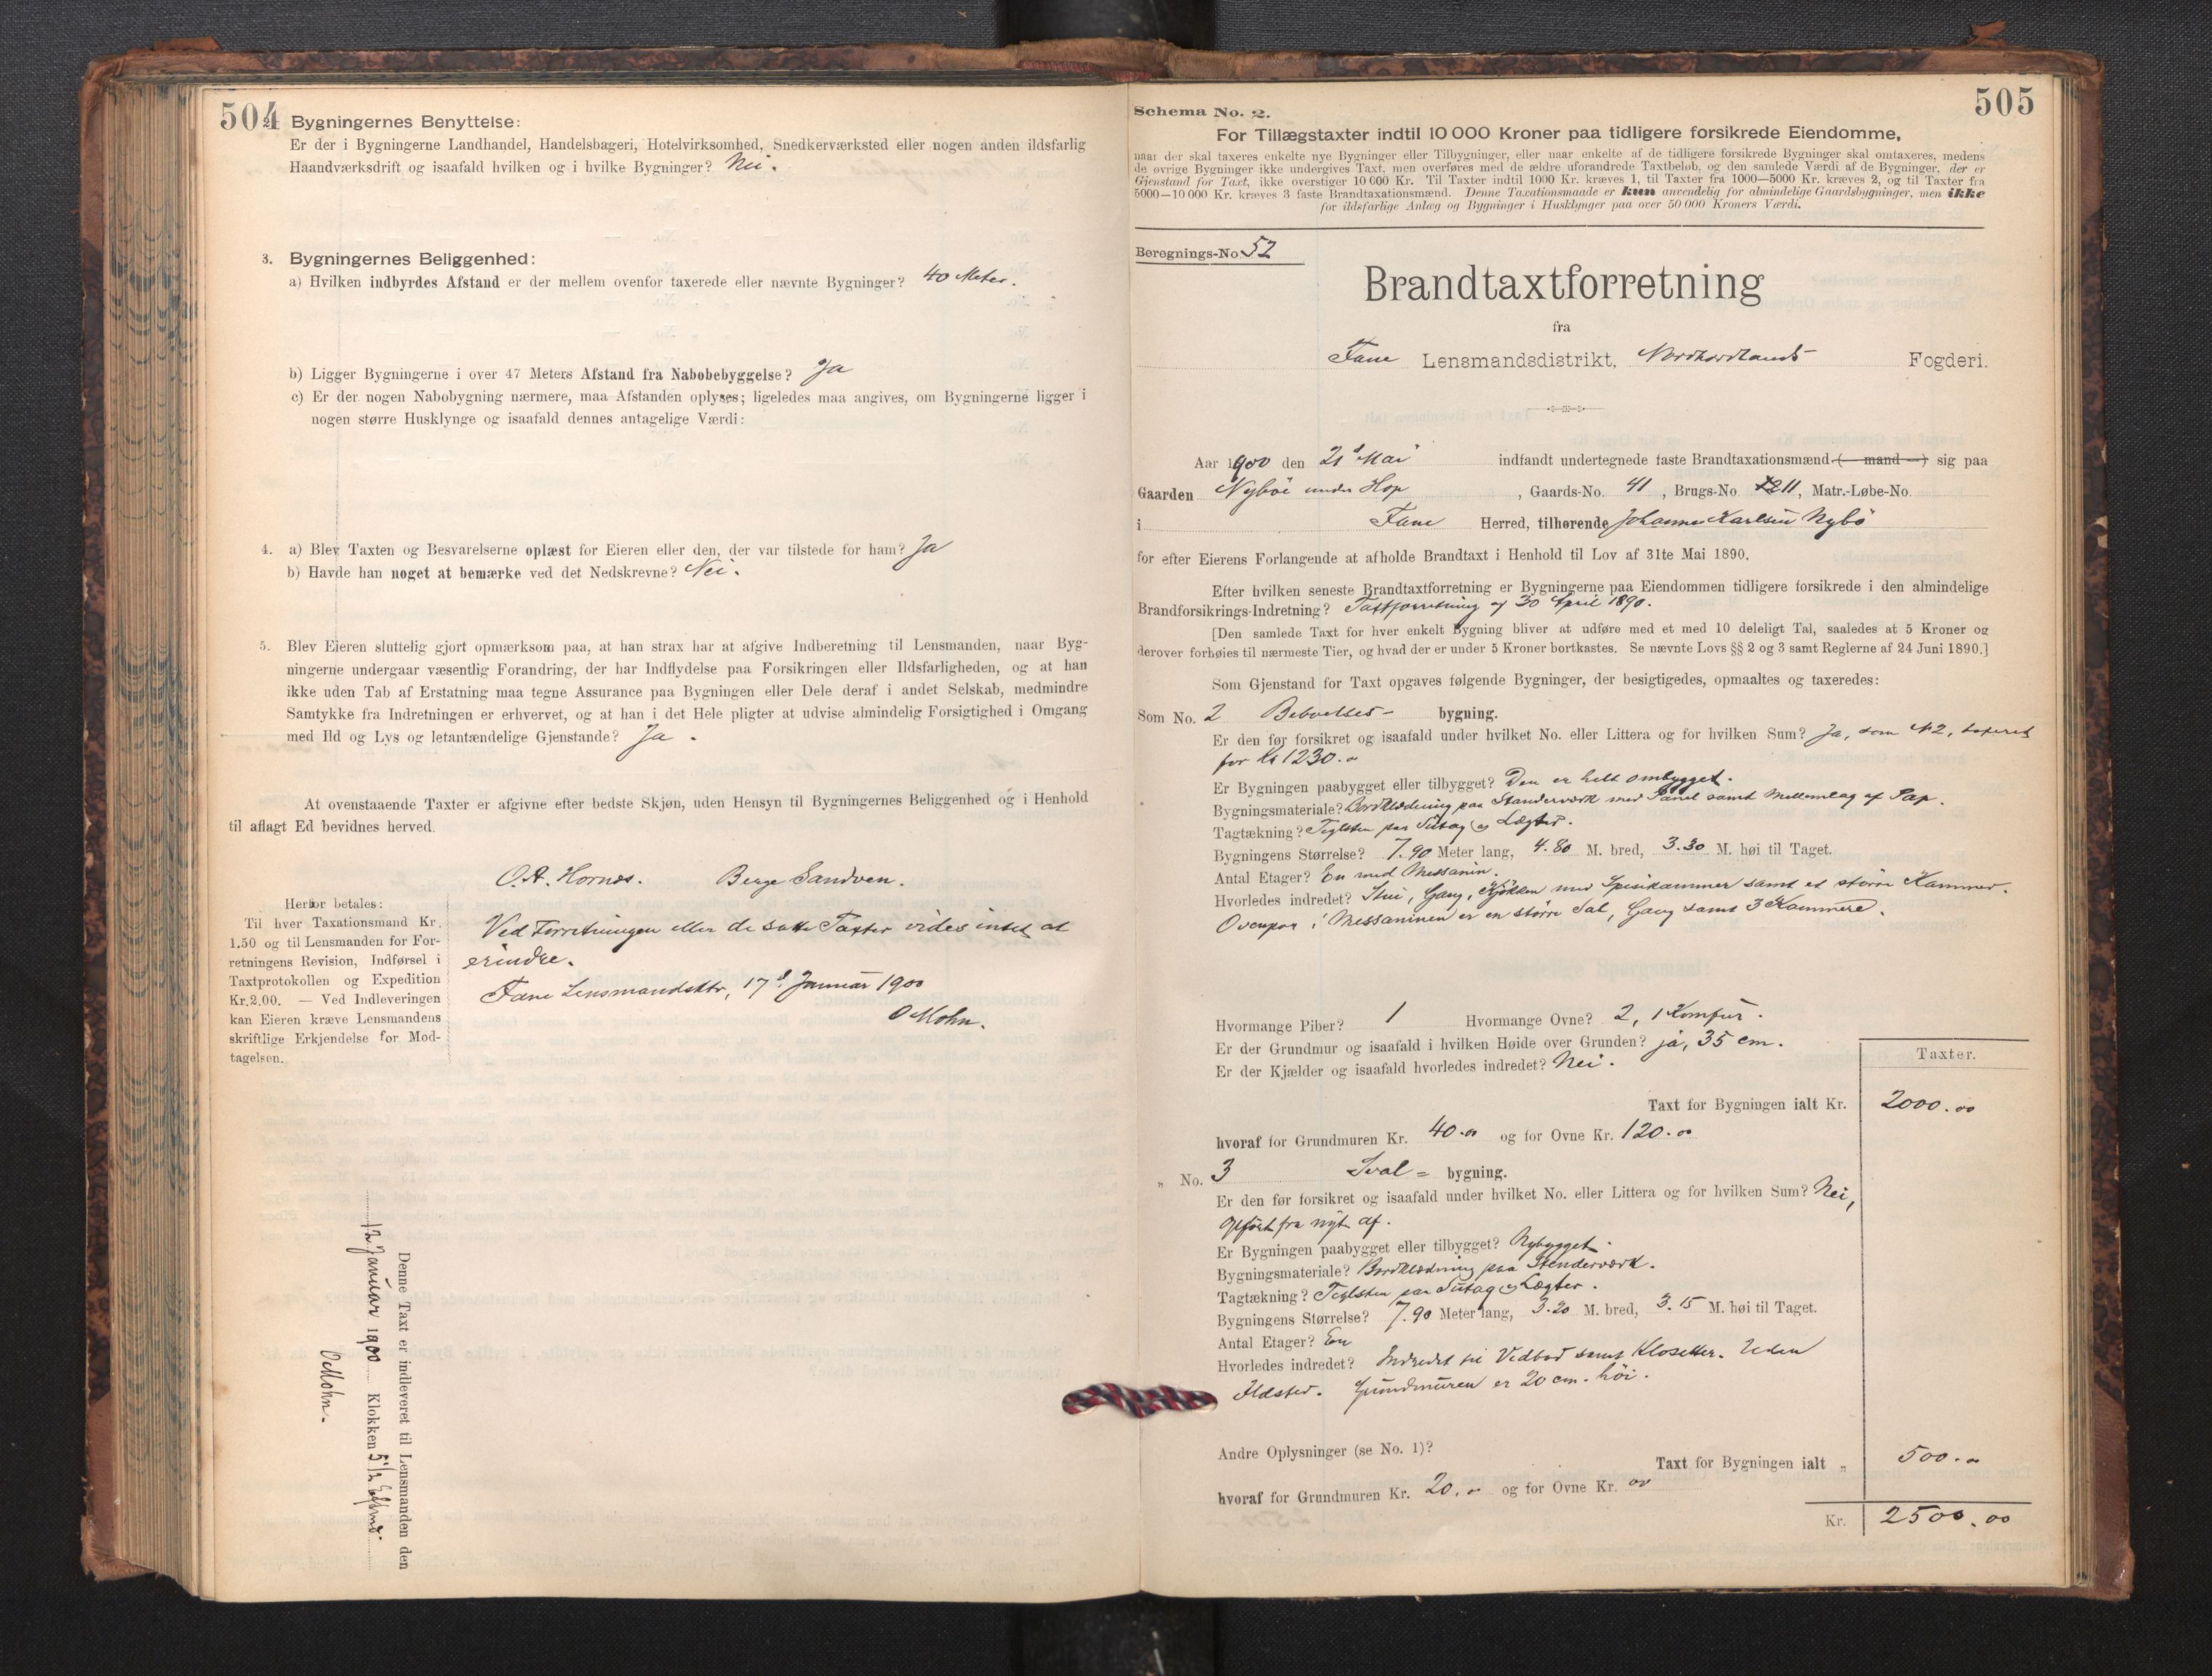 504
2. Bygningernes Benyttelse:
Er der i Bygningerne Landhandel, Handelsbageri, Hotelvirksomhed, Snedkerværksted eller nogen anden ildsfarlig
Haandværksdrift og isaafald hvilken og i hvilke Bygninger? Nei.
3. Bygningernes Beliggenhed:
a) Hvilken indbyrdes Afstand er der mellem ovenfor taxerede eller nævnte Bygninger? 40 Meter.
b) Ligger Bygningerne i over 47 Meters Afstand fra Nabobebyggelse? Ja
c) Er der nogen Nabobygning nærmere, maa Afstanden oplyses; ligeledes maa angives, om Bygningerne ligger i
nogen større Husklynge og isaafald dennes antagelige Værdi:
4. a) Blev Taxten og Besvarelserne oplæst for Eieren eller den, der var tilstede for ham? Ja
b) Havde han noget at bemærke ved det Nedskrevne? Nei.
5. Blev Eieren sluttelig gjort opmærksom paa, at han strax har at afgive Indberetning til Lensmanden, naar Byg-
ningerne undergaar væsentlig Forandring, der har Indflydelse paa Forsikringen eller Ildsfarligheden, og at han
ikke uden Tab af Erstatning maa tegne Assurance paa Bygningen eller Dele deraf i andet Selskab, medmindre
Samtykke fra Indretningen er erhvervet, og at han i det Hele pligter at udvise almindelig Forsigtighed i Omgang
med Ild og Lys og letantændelige Gjenstande? Ja.
At ovenstaaende Taxter er afgivne efter bedste Skjøn, uden Hensyn til Bygningernes Beliggenhed og i Henhold
til aflagt Ed bevidnes herved.
O. A. Hornes. Berge Sandven.
Herfor betales:
Til hver Taxationsmand Kr.
1.50 og til Lensmanden for For-
retningens Revision, Indførsel i
Taxtprotokollen og Expedition
Kr. 2.00. — Ved Indleveringen
kan Eieren kræve Lensmandens
skriftlige Erkjendelse for Mod-
tagelsen.
Ved Forretningen eller de satte Taxter vides intet at
erindre.
Fane Lensmandsktr, 17d Januar 1900
O Mohn.
Denne Taxt er indleveret til Lensmanden den
12 Januar 1900 Klokken 5 1/2 Eftmd.
O Mohn.
505
Schema No. 2.
For Tillægstaxter indtil 10 000 Kroner paa tidligere forsikrede Eiendomme,
naar der skal taxeres enkelte nye Bygninger eller Tilbygninger, eller naar enkelte af de tidligere forsikrede Bygninger skal omtaxeres, medens
de øvrige Bygninger ikke undergives Taxt, men overføres med de ældre uforandrede Taxtbeløb, og den samlede Værdi af de Bygninger, der er
Gjenstand for Taxt, ikke overstiger 10 000 Kr. Til Taxter indtil 1000 Kr. kræves 1, til Taxter fra 1000—5000 Kr. kræves 2, og til Taxter fra
5000—10 000 Kr. kræves 3 faste Brandtaxationsmænd. Denne Taxationsmaade er kun anvendelig for almindelige Gaardsbygninger, men ikke
for ildsfarlige Anlæg og Bygninger i Husklynger paa over 50 000 Kroners Værdi.
Beregnings-No. 52
Brandtaxtforretning
fra
Fane Lensmandsdistrikt, Nordhordlands Fogderi.
Aar 1900 den 21d Mai indfandt undertegnede faste Brandtaxationsmænd (— mand —) sig paa
Gaarden Nybøe under Hop, Gaards-No. 41, Brugs-No. 11, Matr.-Løbe-No.
i Fane Herred, tilhørende Johannes Karlsen Nybø
for efter Eierens Forlangende at afholde Brandtaxt i Henhold til Lov af 31te Mai 1890.
Efter hvilken seneste Brandtaxtforretning er Bygningerne paa Eiendommen tidligere forsikrede i den almindelige
Brandforsikrings-Indretning? Taxtforretning af 30 April 1890.
[Den samlede Taxt for hver enkelt Bygning bliver at udføre med et med 10 deleligt Tal, saaledes at 5 Kroner og
derover forhøies til nærmeste Tier, og hvad der er under 5 Kroner bortkastes. Se nævnte Lovs §§ 2 og 3 samt Reglerne af 24 Juni 1890.]
Som Gjenstand for Taxt opgaves følgende Bygninger, der besigtigedes, opmaaltes og taxeredes:
Som No. 2 Beboelses- bygning.
Er den før forsikret og isaafald under hvilket No. eller Littera og for hvilken Sum? Ja, som N 2, taxeret
for Kr 1230.00
Er Bygningen paabygget eller tilbygget? Den er helt ombygget.
Bygningsmateriale? Bordklædning paa Standerværk med Panel samt Mellemlag af Pap.
Tagtækning? Teglsten paa Sutag og Lægter.
Bygningens Størrelse? 7.90 Meter lang, 4.80 M. bred, 3.30 M. høi til Taget.
Antal Etager? En med Messanin.
Hvorledes indredet? Stue, Gang, Kjøkken med Spisekammer samt et større Kammer.
Ovenpaa i Messaninen er en større Sal, Gang samt 3 Kammere.
Hvormange Piber? 1 Hvormange Ovne? 2, 1 Komfur.
Er der Grundmur og isaafald i hvilken Høide over Grunden? ja, 35 cm.
Er der Kjælder og isaafald hvorledes indredet? Nei.
Taxter.
Taxt for Bygningen ialt Kr. 2000.00
hvoraf for Grundmuren Kr. 40.00 og for Ovne Kr. 120.00
„ No. 3 Sval- bygning.
Er den før forsikret og isaafald under hvilket No. eller Littera og for hvilken Sum? Nei,
opført fra nyt af.
Er Bygningen paabygget eller tilbygget? Nybygget.
Bygningsmateriale? Bordklædning paa Stenderværk.
Tagtækning? Teglsten paa Sutag og Lægter.
Bygningens Størrelse? 7.90 Meter lang, 3.20 M. bred, 3.15 M. høi til Taget.
Antal Etager? En
Hvorledes indredet? Indredet til Vedbod samt Klosetter. Uden
Ildsted. Grundmuren er 20 cm. høi.
Andre Oplysninger (se No. 1)?
Taxt for Bygningen ialt „ 500.00
hvoraf for Grundmuren Kr. 20.00 og for Ovne Kr. 00
Kr. 2500.00